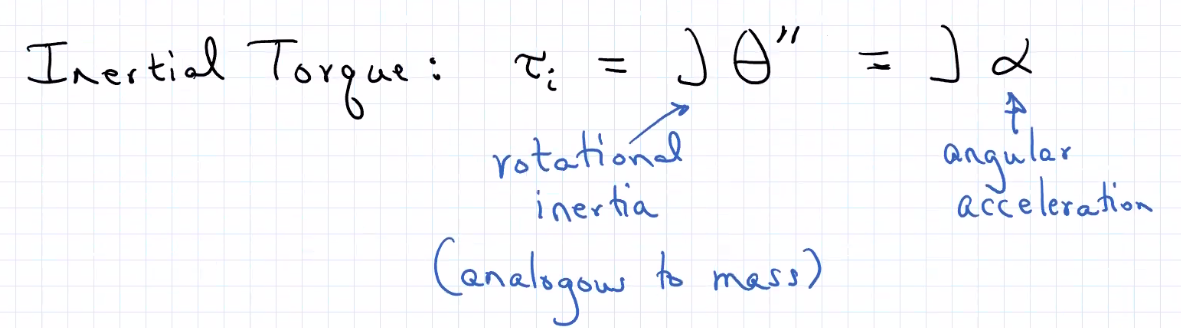 Inertial Torque: τᵢ = J θ" = J α
rotational
inertia
(analogous to mass)
angular
acceleration